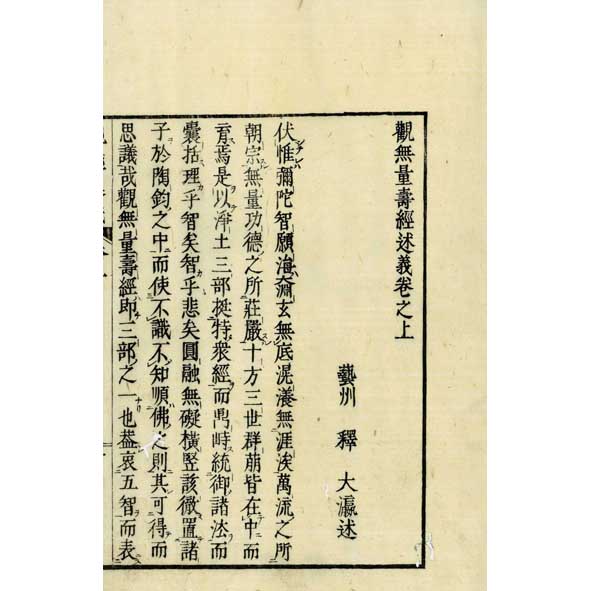 觀無量壽經述義卷之上
藝州 釋 大瀛述
伏惟彌陀智願海深玄無底滉瀁無涯涘萬流之所
朝宗無量功德之所莊嚴十方三世群萠皆在中而
育焉是以淨土三部挺特衆經而鼎峙統御諸法而
囊括理乎智矣智乎悲矣圓融無礙橫竪該徹置諸
子於陶鈞之中而使不識不知順佛之則其可得而
思議哉觀無量壽經即三部之一也葢哀五智而表